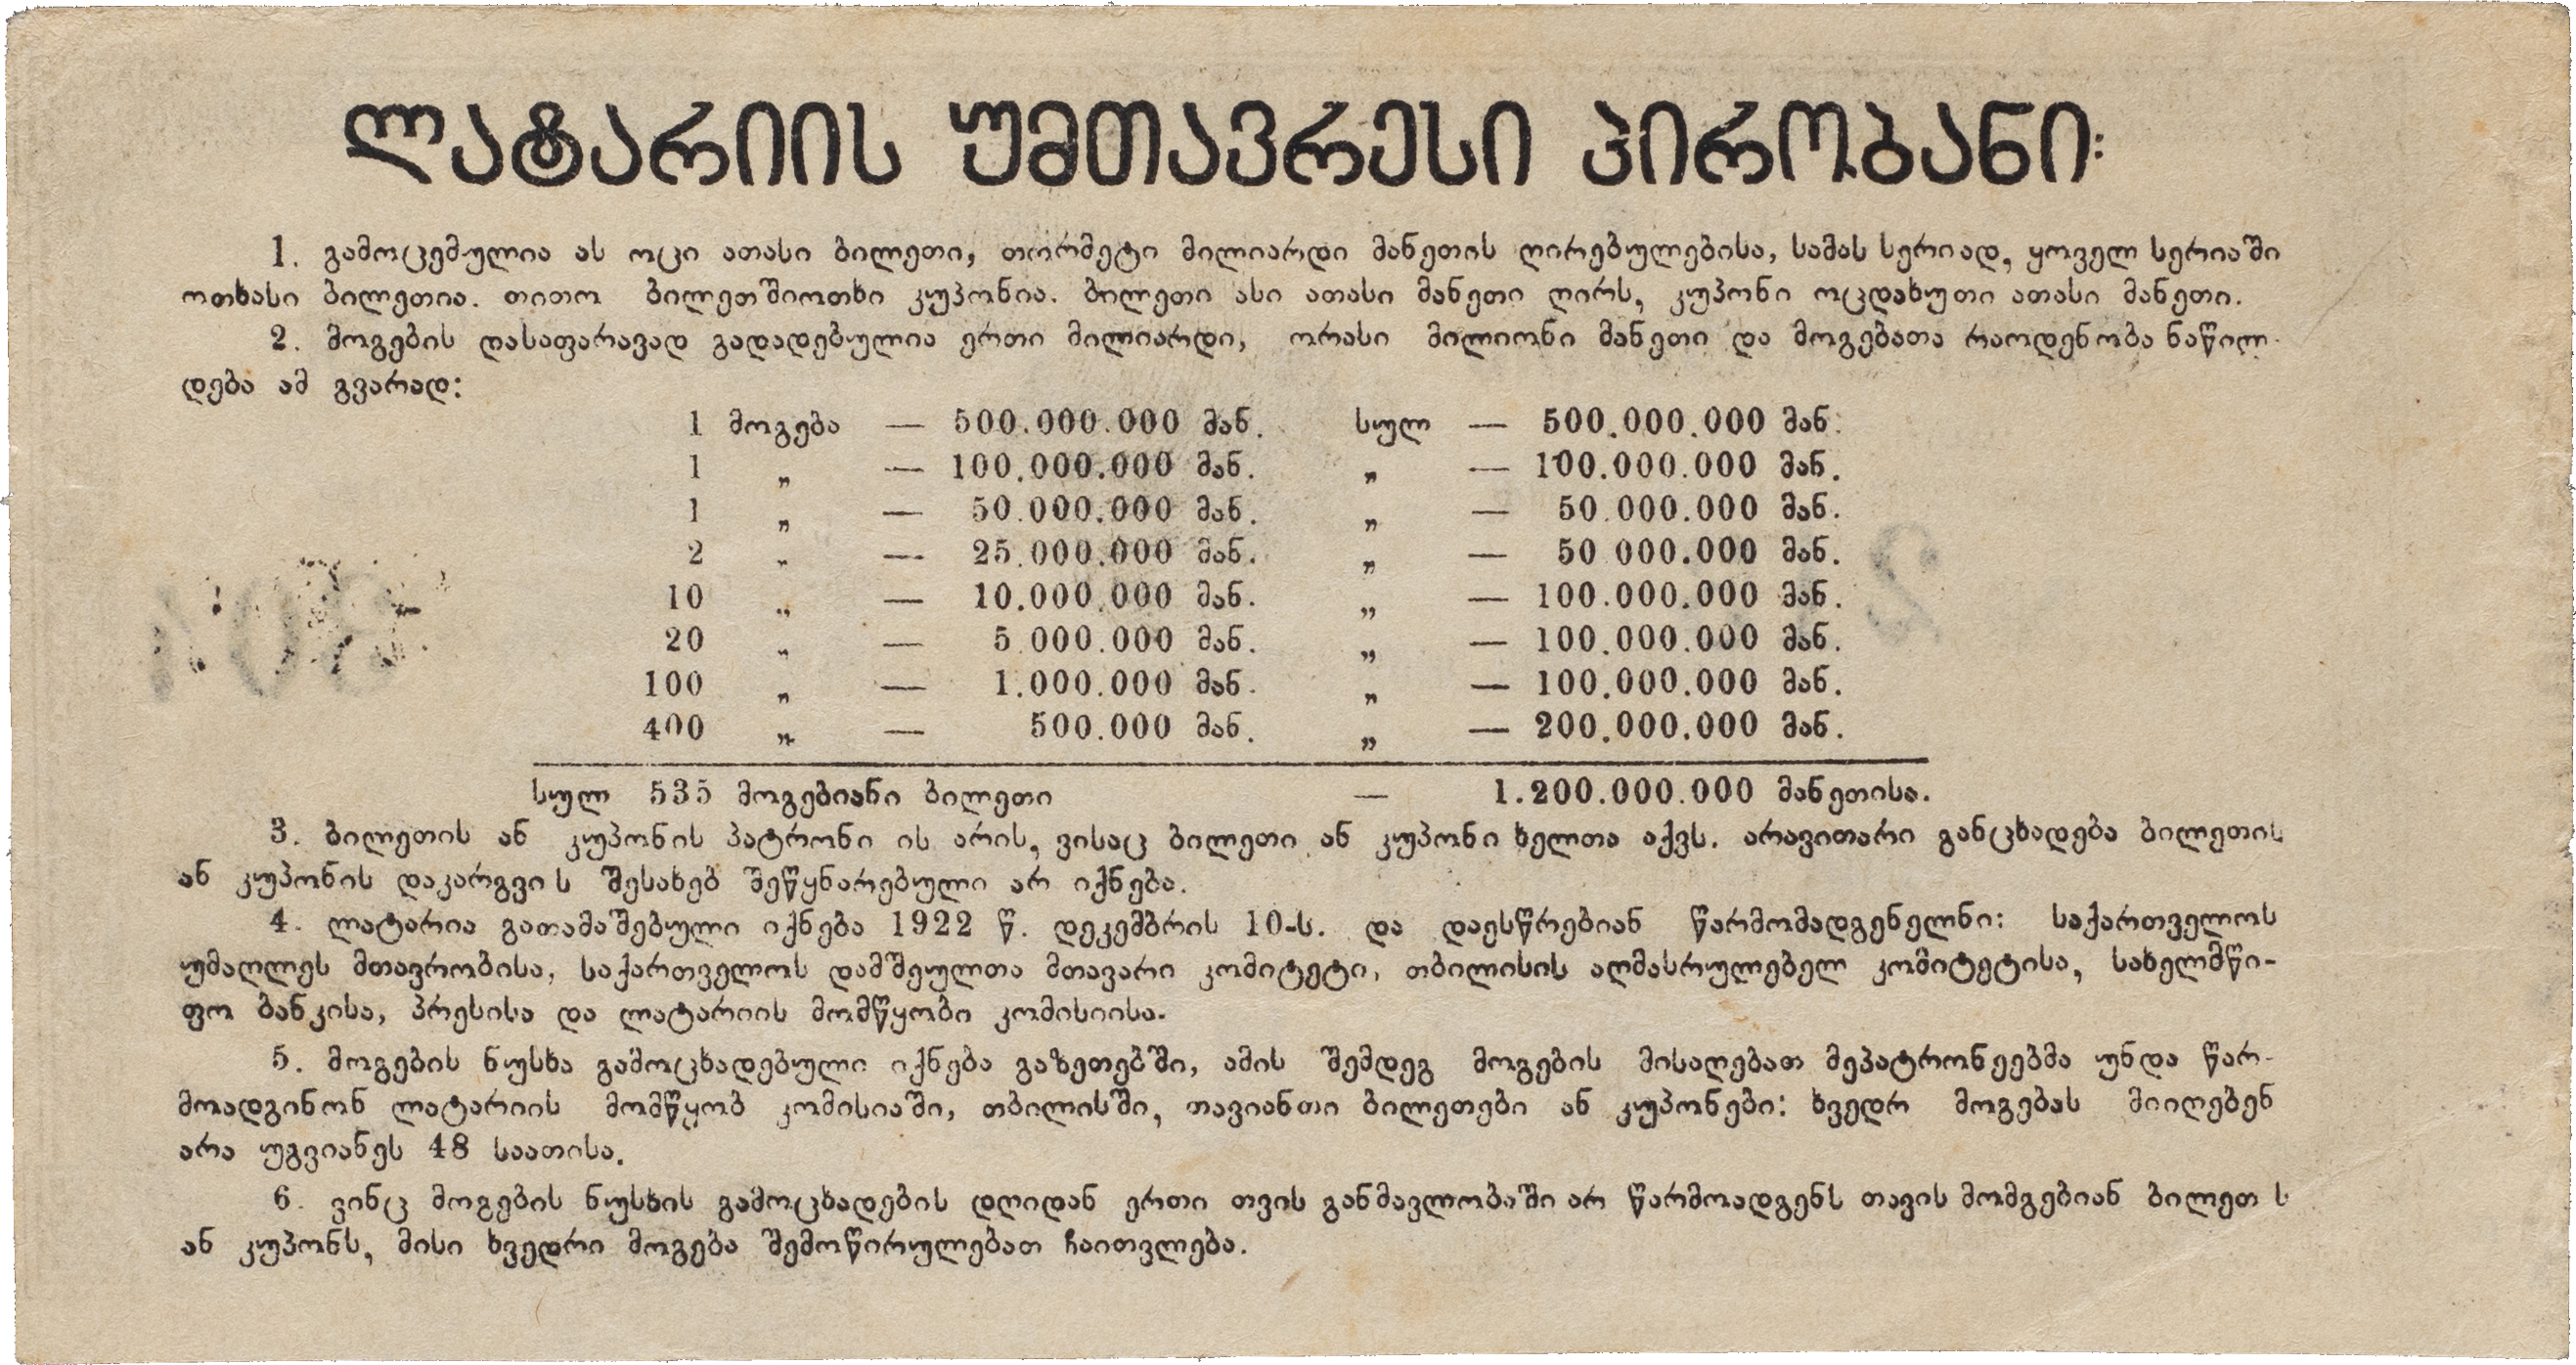 ლატარიის უმთავრესი პირობანი:
1. გამოცემულია ას ოცი ათასი ბილეთი, თორმეტი მილიარდი მანეთის ღირებულებისა, სამას სერიად, ყოველ სერიაში
ოთხასი ბილეთია. თითო ბილეთშიოთხი კუპონია. ბილეთი ასი ათასი მანეთი ღირს, კუპონი ოცდახუთი ათასი მანეთი.
2. მოგების დასაფარავად გადადებულია ერთი მილიარდი, ორასი მილიონი მანეთი და მოგებათა რაოდენობა ნაწილ-
დება ამ გვარად:
1 მოგება — 500.000.000 მან. სულ — 500.000.000 მან.
1 „ — 100.000.000 მან. „ — 100.000.000 მან.
1 „ — 50.000.000 მან. „ — 50.000.000 მან.
2 „ — 25.000.000 მან. „ — 50 000.000 მან.
10 „ — 10.000.000 მან. „ — 100.000.000 მან.
20 „ — 5 000.000 მან. „ — 100.000.000 მან.
100 „ — 1.000.000 მან. „ — 100.000.000 მან.
400 „ — 500.000 მან. „ — 200.000.000 მან.
სულ 535 მოგებიანი ბილეთი — 1.200.000.000 მანეთისა.
3. ბილეთის ან კუპონის პატრონი ის არის, ვისაც ბილეთი ან კუპონი ხელთა აქვს. არავითარი განცხადება ბილეთის
ან კუპონის დაკარგვის შესახებ შეწყნარებული არ იქნება.
4. ლატარია გათამაშებული იქნება 1922 წ. დეკემბრის 10-ს. და დაესწრებიან წარმომადგენელნი: საქართველოს
უმაღლეს მთავრობისა, საქართველოს დამშეულთა მთავარი კომიტეტი, თბილისის აღმასრულებელ კომიტეტისა, სახელმწი-
ფო ბანკისა, პრესისა და ლატარიის მომწყობი კომისიისა.
5. მოგების ნუსხა გამოცხადებული იქნება გაზეთებში, ამის შემდეგ მოგების მისაღებათ მეპატრონეებმა უნდა წარ-
მოადგინონ ლატარიის მომწყობ კომისიაში, თბილისში, თავიანთი ბილეთები ან კუპონები: ხვედრ მოგებას მიიღებენ
არა უგვიანეს 48 საათისა.
6. ვინც მოგების ნუსხის გამოცხადების დღიდან ერთი თვის განმავლობაში არ წარმოადგენს თავის მომგებიან ბილეთ ს
ან კუპონს, მისი ხვედრი მოგება შემოწირულებათ ჩაითვლება.